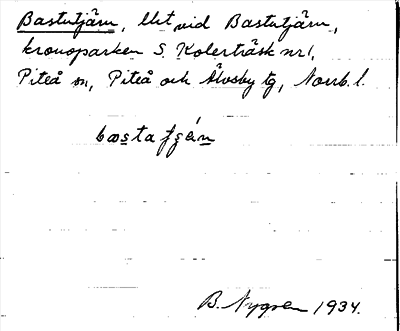 Bastutjärn, lht vid Bastutjärn,
kronoparken S. Kolerträsk nr 1,
Piteå sn, Piteå och Älvsby tg, Norrb. l.
B. Nygren 1934.